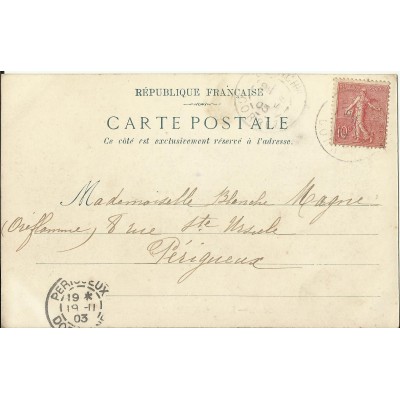 RÉPUBLIQUE FRANÇAISE
CARTE POSTALE
Ce côté est exclusivement réservé à l'adresse.
10
03
Mademoiselle Blanche Magne
(Oriflamme) 8 rue Ste Ursule
Périgueux
PERIGUEUX
19 *
19 -11
03